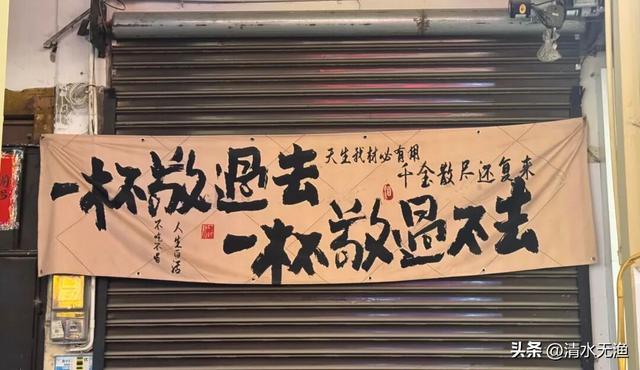 一杯敬過去
天生我材必有用
千金散尽还复来
人生百活
一杯敬過不去
头条@清水无渔